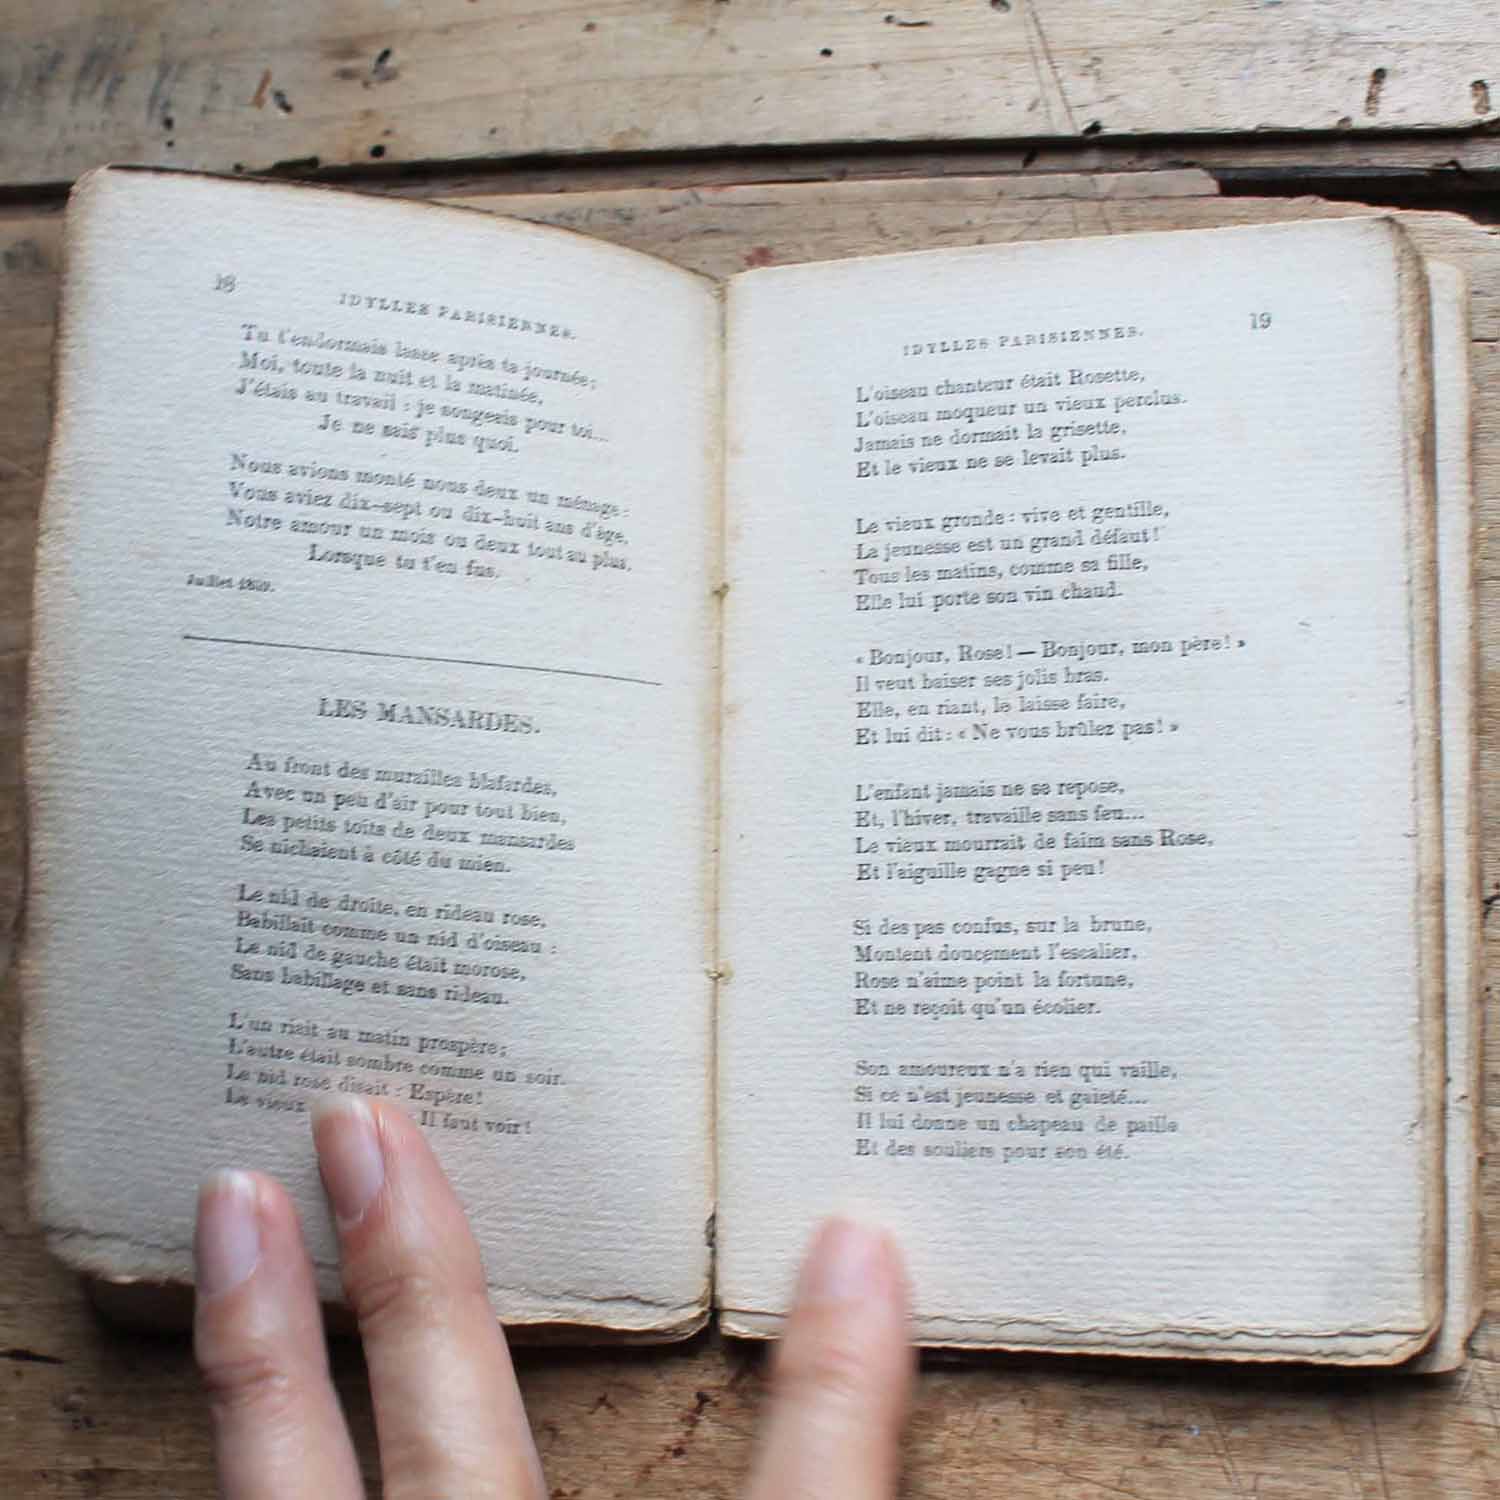 18
IDYLLES PARISIENNES.
Tu t'endormais lasse après ta journée;
Moi, toute la nuit et la matinée,
J'étais au travail : je songeais pour toi...
Je ne sais plus quoi.
Nous avions monté nous deux un ménage :
Vous aviez dix-sept ou dix-huit ans d'âge,
Notre amour un mois ou deux tout au plus,
Lorsque tu t'en fus.
Juillet
LES MANSARDES.
Au front des murailles blafardes,
Avec un peu d'air pour tout bien,
Les petits toits de deux mansardes
Se nichaient à côté du mien.
Le nid de droite, en rideau rose,
Babillait comme un nid d'oiseau :
Le nid de gauche était morose,
Sans babillage et sans rideau.
L'un riait au matin prospère;
L'autre était sombre comme un soir.
Le nid rose disait : Espère!
Le vieux Il faut voir!
19
IDYLLES PARISIENNES.
L'oiseau chanteur était Rosette,
L'oiseau moqueur un vieux perclus.
Jamais ne dormait la grisette,
Et le vieux ne se levait plus.
Le vieux gronde : vive et gentille,
La jeunesse est un grand défaut!
Tous les matins, comme sa fille,
Elle lui porte son vin chaud.
« Bonjour, Rose! — Bonjour, mon père! »
Il veut baiser ses jolis bras.
Elle, en riant, le laisse faire,
Et lui dit : « Ne vous brûlez pas! »
L'enfant jamais ne se repose,
Et, l'hiver, travaille sans feu...
Le vieux mourrait de faim sans Rose,
Et l'aiguille gagne si peu!
Si des pas confus, sur la brune,
Montent doucement l'escalier,
Rose n'aime point la fortune,
Et ne reçoit qu'un écolier.
Son amoureux n'a rien qui vaille,
Si ce n'est jeunesse et gaieté...
Il lui donne un chapeau de paille
Et des souliers pour son été.